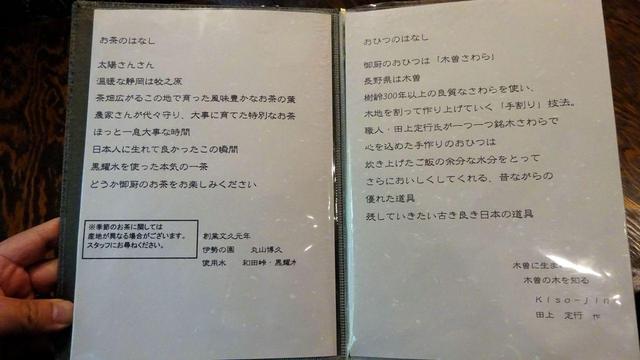 お茶のはなし
太陽さんさん
温暖な静岡は牧之原
茶畑広がるこの地で育った風味豊かなお茶の葉
農家さんが代々守り、大事に育てた特別なお茶
ほっと一息大事な時間
日本人に生れて良かったこの瞬間
黒耀水を使った本気の一茶
どうか御厨のお茶をお楽しみください
※季節のお茶に関しては
産地が異なる場合がございます。
スタッフにお尋ねください。
創業文久元年
伊勢の園 丸山博久
使用水 和田峠・黒耀水
おひつのはなし
御厨のおひつは「木曽さわら」
長野県は木曽
樹齢300年以上の良質なさわらを使い、
木地を割って作り上げていく「手割り」技法。
職人・田上定行氏が一つ一つ銘木さわらで
心を込めた手作りのおひつは
炊き上げたご飯の余分な水分をとって
さらにおいしくしてくれる、昔ながらの
優れた道具
残していきたい古き良き日本の道具
木曽に生ま
木曽の木を知る
Kiso-jin
田上 定行 作